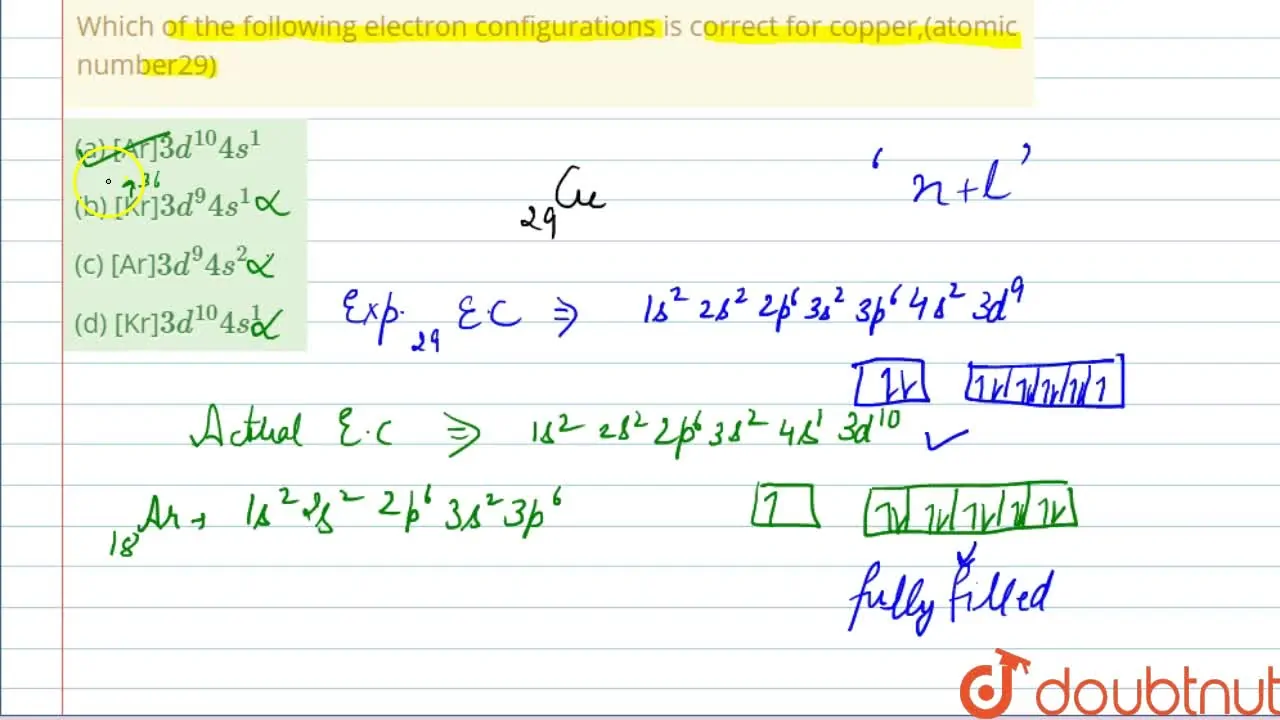 Which of the following electron configurations is correct for copper,(atomic
number29)
(a) [Ar]3d¹⁰4s¹
36
(b) [Kr]3d⁹4s¹
(c) [Ar]3d⁹4s²
(d) [Kr]3d¹⁰4s¹
₂₉Cu
‘n+l’
Exp. E.C ⇒ 1s² 2s² 2p⁶ 3s² 3p⁶ 4s² 3d⁹
29
Actual E.C ⇒ 1s² 2s² 2p⁶ 3s² 4s¹ 3d¹⁰ ✓
₁₈Ar → 1s² 2s² 2p⁶ 3s² 3p⁶
fully filled
doubtnut